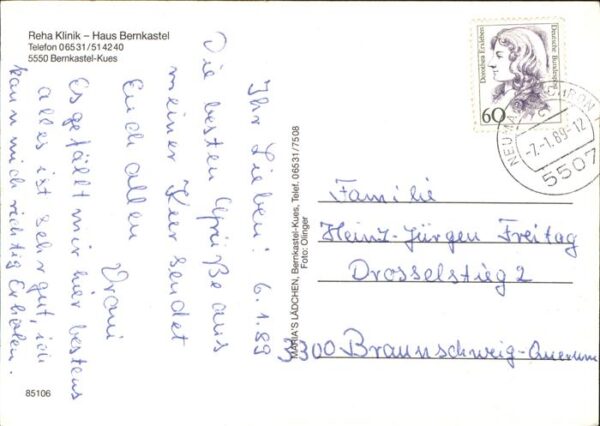 Reha Klinik – Haus Bernkastel
Telefon 06531/514240
5550 Bernkastel-Kues
Ihr Lieben! 6.1.89
Die besten Grüße aus
meiner Kur sendet
Euch allen
Omi
Es gefällt mir hier bestens
alles ist sehr gut, ich
kann mich richtig Erholen.
85106
MARIA'S LÄDCHEN, Bernkastel-Kues, Telef. 06531/7508
Foto: Ollinger
Dorothea Erxleben
Deutsche Bundespost
60
-7.-1.89-12
5507
Familie
Heinz-Jürgen Freitag
Drosselstieg 2
3300 Braunschweig-Querum